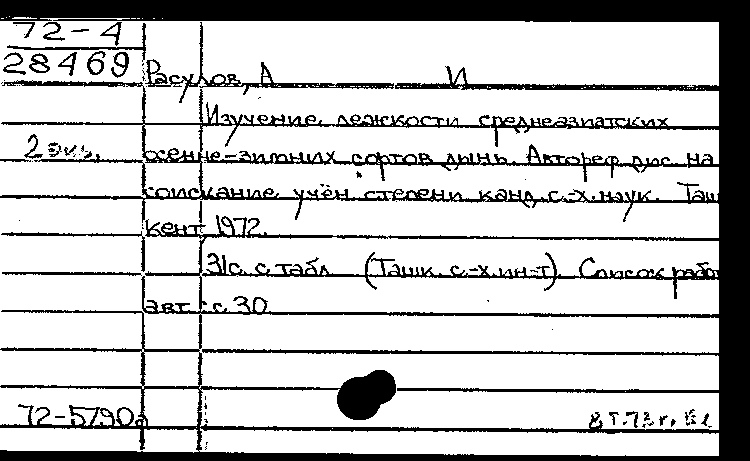 72-4
28469
Расулов, А И
Изучение лежкости среднеазиатских
2 экз. осенне-зимних сортов дынь. Автореф. дис. на
соискание учён. степени канд. с.-х. наук. Таш
кент, 1972.
31с. с табл. (Ташк. с.-х. ин-т). Список работ
авт.: с. 30
72-5790а